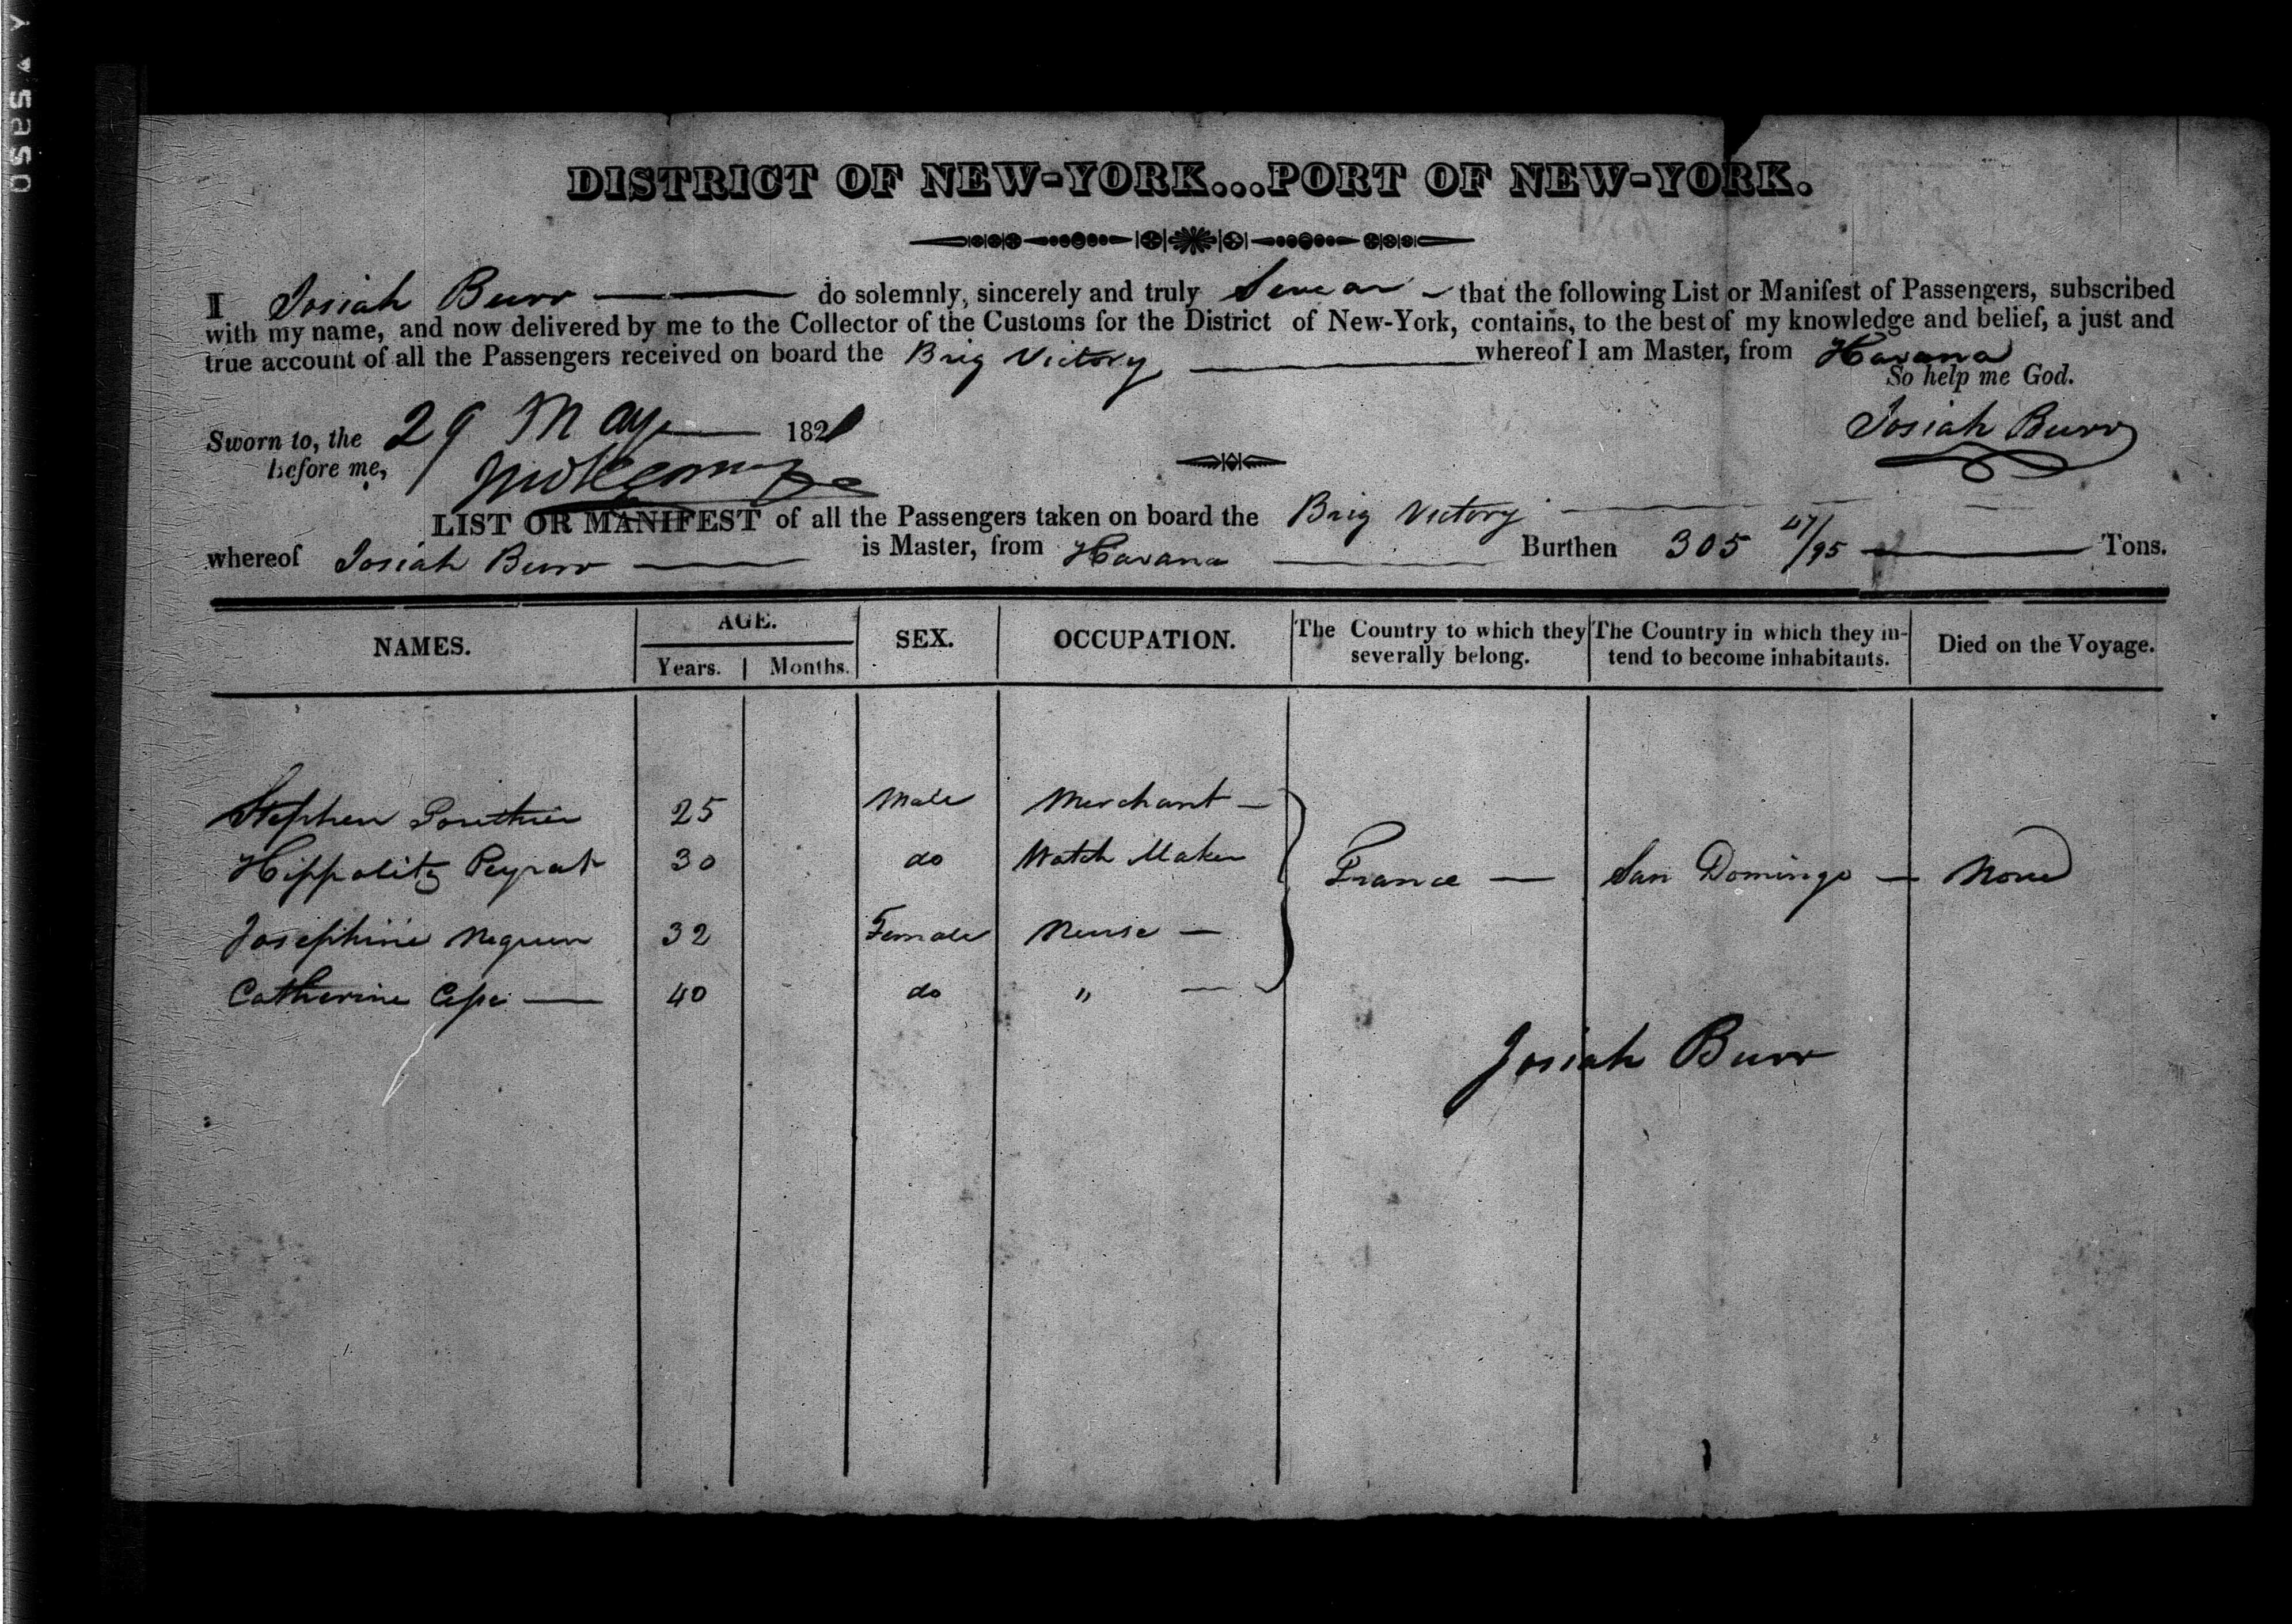 DISTRICT OF NEW-YORK...PORT OF NEW-YORK.
I Josiah Burr do solemnly, sincerely and truly Swear that the following List or Manifest of Passengers, subscribed
with my name, and now delivered by me to the Collector of the Customs for the District of New-York, contains, to the best of my knowledge and belief, a just and
true account of all the Passengers received on board the Brig Victory whereof I am Master, from Havana
So help me God.
Sworn to, the 29 May 182
before me,
Josiah Burr
LIST OR MANIFEST of all the Passengers taken on board the Brig Victory
whereof Josiah Burr is Master, from Havana Burthen 305 47/95 Tons.
NAMES. AGE. SEX. OCCUPATION. The Country to which they severally belong. The Country in which they in-tend to become inhabitants. Died on the Voyage.
Years. Months.
Stephen 25 Male Merchant
Hippolite Peyrat 30 do Watch Maker
France San Domingo None
Josephine 32 Female Nurse
Catherine 40 do "
Josiah Burr